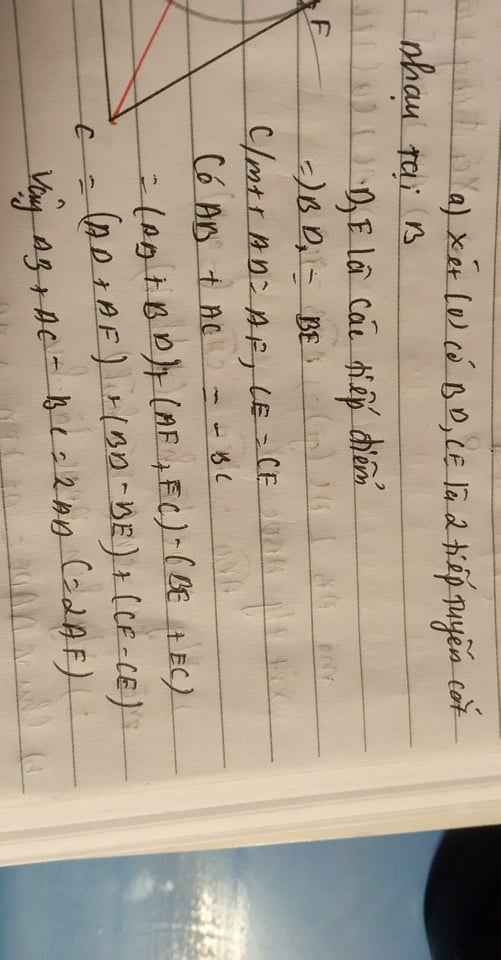 F
C
a) Xét (O) có BD, CE là 2 tiếp tuyến cắt
nhau tại B
D, E là các tiếp điểm
=) BD, = BE
C/mtt AD = AF, CE = CF
Có AB + AC - BC
= (AD + BD) + (AF + FC) - (BE + EC)
= (AD + AF) + (BD - BE) + (CF - CE)
Vậy AB + AC - BC = 2AD (= 2AF)